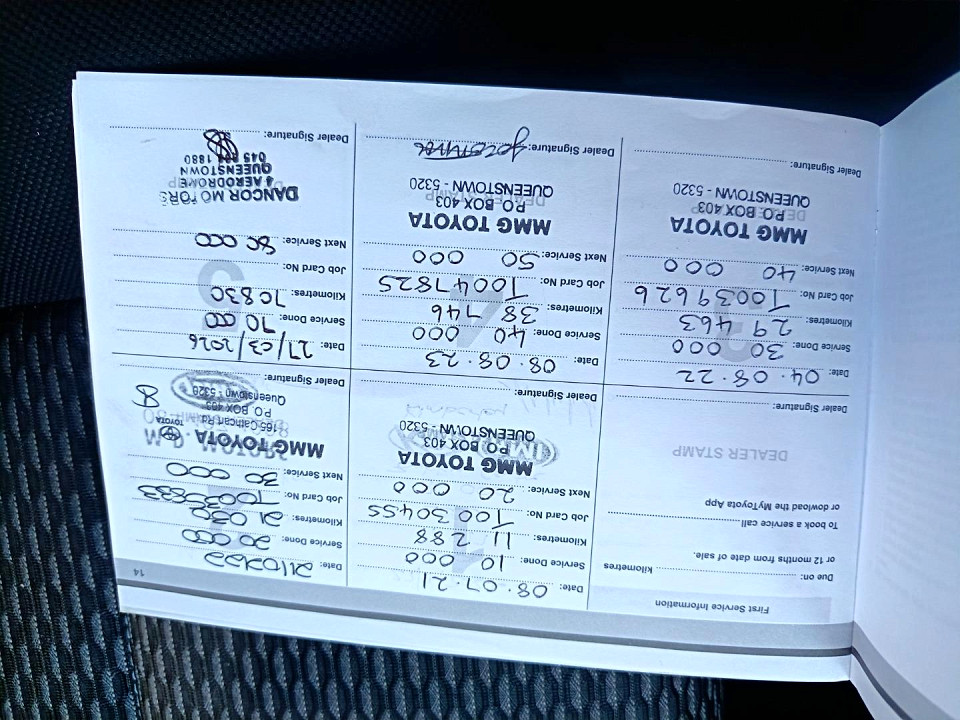 14
First Service Information
Due on: Kilometres
or 12 months from date of sale.
To book a service call
or download the MyToyota App
DEALER STAMP
Dealer Signature:
Date: 08.07.21
Service Done: 10 000
Kilometres: 11 288
Job Card No: T0030455
Next Service: 20 000
MMG TOYOTA
P.O. BOX 403
QUEENSTOWN - 5320
Dealer Signature:
Date: 21/02/22
Service Done: 20 000
Kilometres: 21 030
Job Card No:
Next Service: 30 000
MMG TOYOTA
TOYOTA
165 Cathcart Rd
P.O. BOX 403
Queenstown - 5320
Dealer Signature:
Date: 04.08.22
Service Done: 30 000
Kilometres: 29 463
Job Card No: T0039626
Next Service: 40 000
MMG TOYOTA
P.O. BOX 403
QUEENSTOWN - 5320
Dealer Signature:
Date: 08.08.23
Service Done: 40 000
Kilometres: 38 746
Job Card No: T0047825
Next Service: 50 000
MMG TOYOTA
P.O. BOX 403
QUEENSTOWN - 5320
Dealer Signature:
Date: 27/03/2026
Service Done: 70 000
Kilometres: 70830
Job Card No:
Next Service: 80 000
DANCOR MOTORS
4 AERODROME
QUEENSTOWN
045 1880
Dealer Signature: